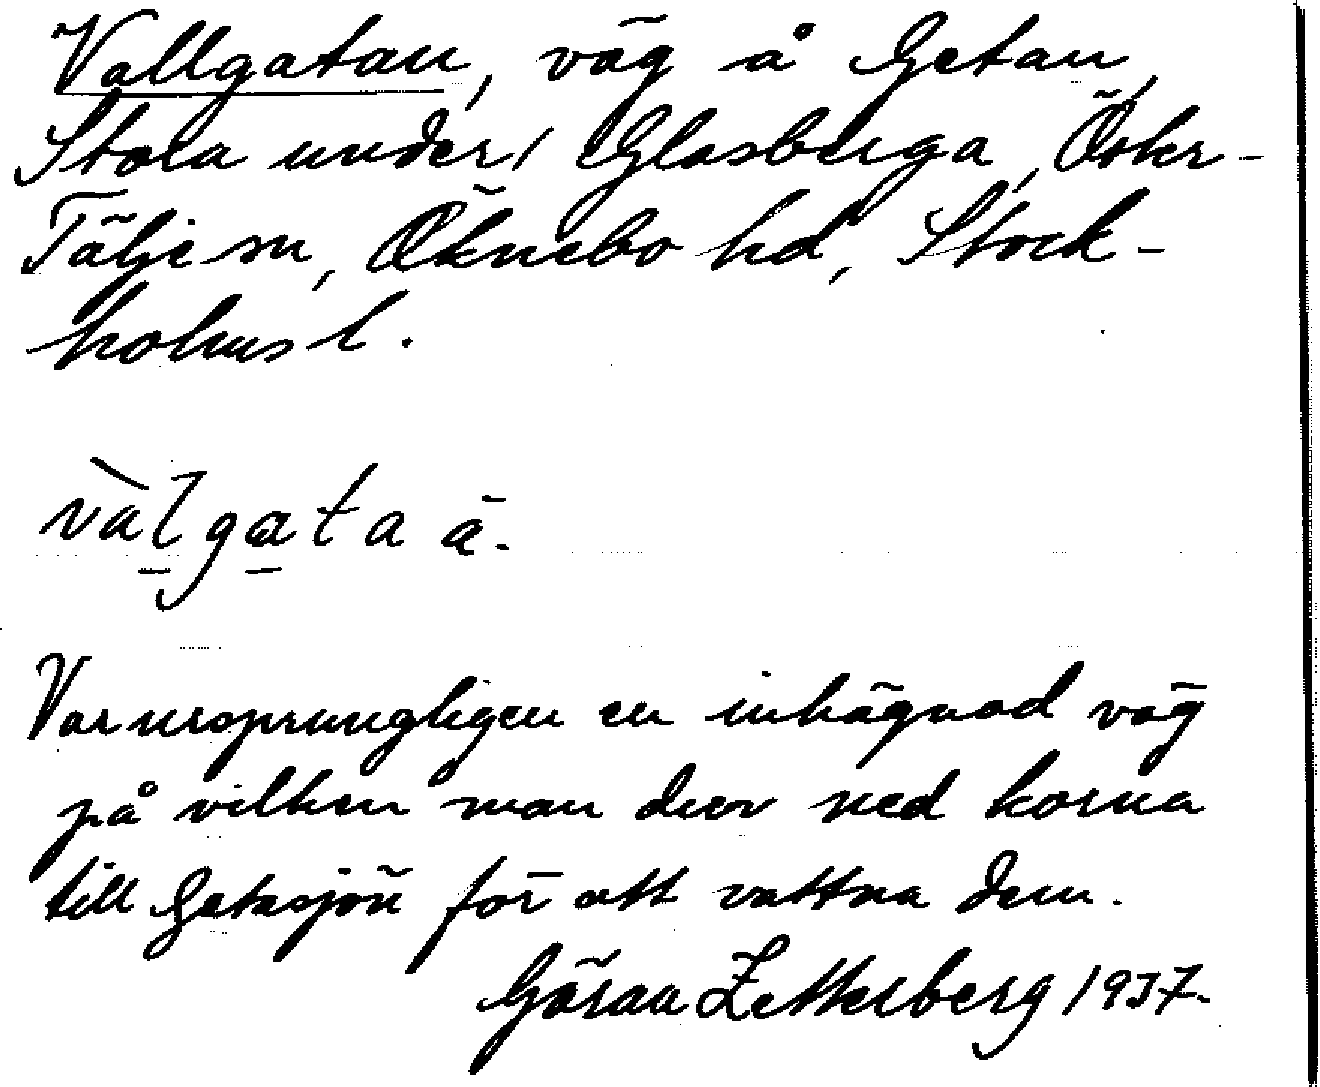 Vallgatan, väg å Getan,
Stora under / Glasberga, Öster-
Tälje sn, Öknebo hd, Stock-
holms l.
vàlgata ā.
Var ursprungligen en inhägnad väg
på vilken man drev ned korna
till Getasjön för att vattna dem.
Göran Zetterberg 1937.